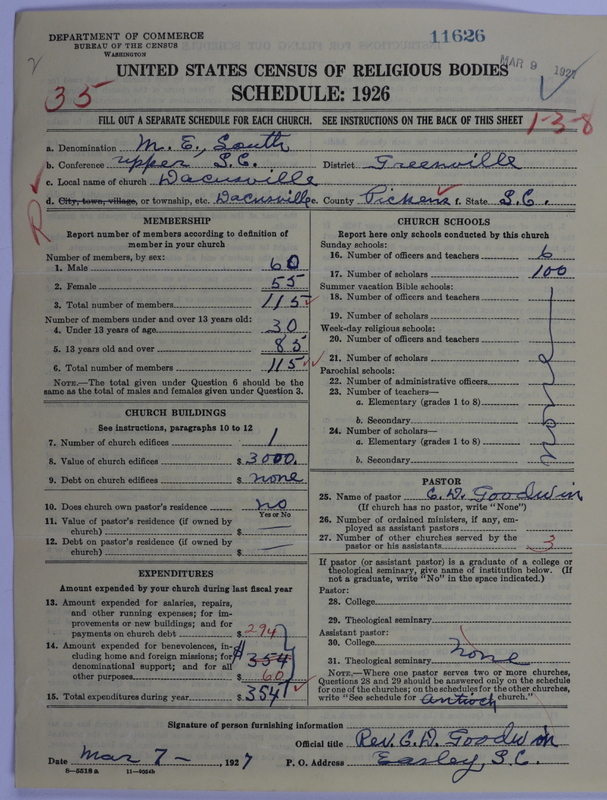 DEPARTMENT OF COMMERCE
BUREAU OF THE CENSUS
WASHINGTON
11626
MAR 9 1927
UNITED STATES CENSUS OF RELIGIOUS BODIES
SCHEDULE: 1926
35
FILL OUT A SEPARATE SCHEDULE FOR EACH CHURCH. SEE INSTRUCTIONS ON THE BACK OF THIS SHEET
1-3-8
a. Denomination M. E. South
b. Conference upper S.C. District Greenville
c. Local name of church Dacusville
R
d. City, town, village, or township, etc. Dacusville e. County Pickens f. State S.C.
MEMBERSHIP
Report number of members according to definition of
member in your church
Number of members, by sex:
1. Male 60
2. Female 55
3. Total number of members 115
Number of members under and over 13 years old:
4. Under 13 years of age 30
5. 13 years old and over 85
6. Total number of members 115
NOTE.—The total given under Question 6 should be the
same as the total of males and females given under Question 3.
CHURCH BUILDINGS
See instructions, paragraphs 10 to 12
7. Number of church edifices 1
8. Value of church edifices $ 3000.
9. Debt on church edifices $ none
10. Does church own pastor's residence no
Yes or No
11. Value of pastor's residence (if owned by
church) $ —
12. Debt on pastor's residence (if owned by
church) $ —
EXPENDITURES
Amount expended by your church during last fiscal year
13. Amount expended for salaries, repairs,
and other running expenses; for im-
provements or new buildings; and for
payments on church debt $ 294
14. Amount expended for benevolences, in-
cluding home and foreign missions; for
denominational support; and for all
other purposes $ 354 60
15. Total expenditures during year $ 354
CHURCH SCHOOLS
Report here only schools conducted by this church
Sunday schools:
16. Number of officers and teachers 6
17. Number of scholars 100
Summer vacation Bible schools:
18. Number of officers and teachers
19. Number of scholars
Week-day religious schools:
20. Number of officers and teachers
21. Number of scholars
Parochial schools:
22. Number of administrative officers
23. Number of teachers—
a. Elementary (grades 1 to 8)
b. Secondary
24. Number of scholars—
a. Elementary (grades 1 to 8)
b. Secondary
PASTOR
25. Name of pastor C. D. Goodwin
(If church has no pastor, write "None")
26. Number of ordained ministers, if any, em-
ployed as assistant pastors
27. Number of other churches served by the
pastor or his assistants 3
If pastor (or assistant pastor) is a graduate of a college or
theological seminary, give name of institution below. (If
not a graduate, write "No" in the space indicated.)
Pastor:
28. College
29. Theological seminary
Assistant pastor:
30. College
31. Theological seminary none
NOTE.—Where one pastor serves two or more churches,
Questions 28 and 29 should be answered only on the schedule
for one of the churches; on the schedules for the other churches,
write "See schedule for Antioch church."
Signature of person furnishing information
Official title Rev. C. D. Goodwin
Date Mar 7 —, 1927 P. O. Address Easley, S.C.
8—5518a 11—9204b